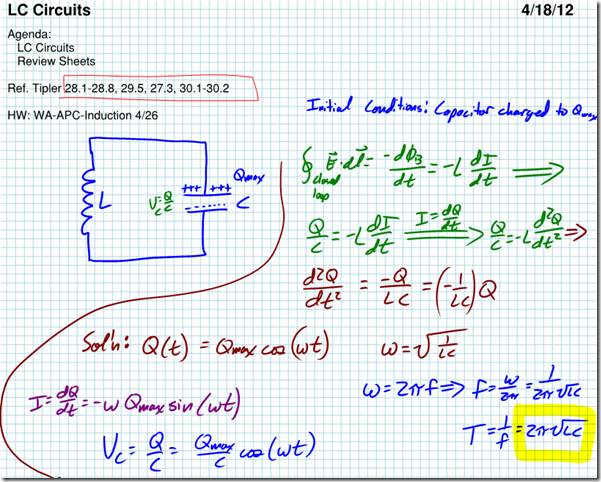 LC Circuits 4/18/12
Agenda:
LC Circuits
Review Sheets
Ref. Tipler 28.1-28.8, 29.5, 27.3, 30.1-30.2
HW: WA-APC-Induction 4/26
Initial Conditions: Capacitor charged to Qmax
L
V_C = Q/C
+++ +++
Qmax
C
∮_closed loop E⃗·dl⃗ = -dΦ_B/dt = -L dI/dt ⟹
Q/C = -L dI/dt ⟹ I = dQ/dt Q/C = -L d²Q/dt² ⟹
d²Q/dt² = -Q/LC = (-1/LC) Q
Sol'n: Q(t) = Qmax cos(ωt) ω = √(1/LC)
I = dQ/dt = -ω Qmax sin(ωt)
ω = 2πf ⟹ f = ω/2π = 1/2π√LC
V_C = Q/C = Qmax/C cos(ωt)
T = 1/f = 2π√LC